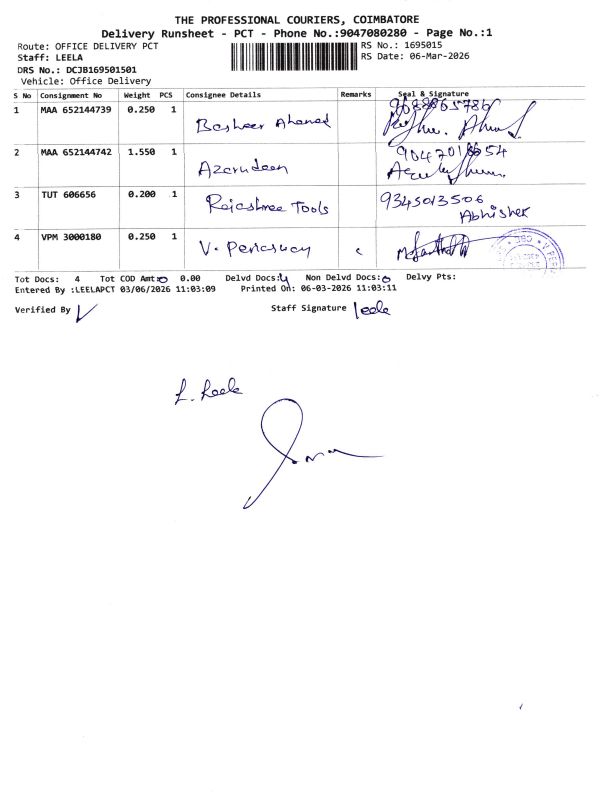 THE PROFESSIONAL COURIERS, COIMBATORE
Delivery Runsheet - PCT - Phone No.:9047080280 - Page No.:1
Route: OFFICE DELIVERY PCT RS No.: 1695015
Staff: LEELA RS Date: 06-Mar-2026
DRS No.: DCJB169501501
Vehicle: Office Delivery
S No Consignment No Weight PCS Consignee Details Remarks Seal & Signature
1 MAA 652144739 0.250 1 Basheer Ahamed
2 MAA 652144742 1.550 1 Azarudeen
3 TUT 606656 0.200 1 Rajashree Tools 9345013506
Abhishek
4 VPM 3000180 0.250 1
Tot Docs: 4 Tot COD Amt: 0.00 Delvd Docs:4 Non Delvd Docs:0 Delvy Pts:
Entered By :LEELAPCT 03/06/2026 11:03:09 Printed On: 06-03-2026 11:03:11
Verified By Staff Signature leela
L. Leela